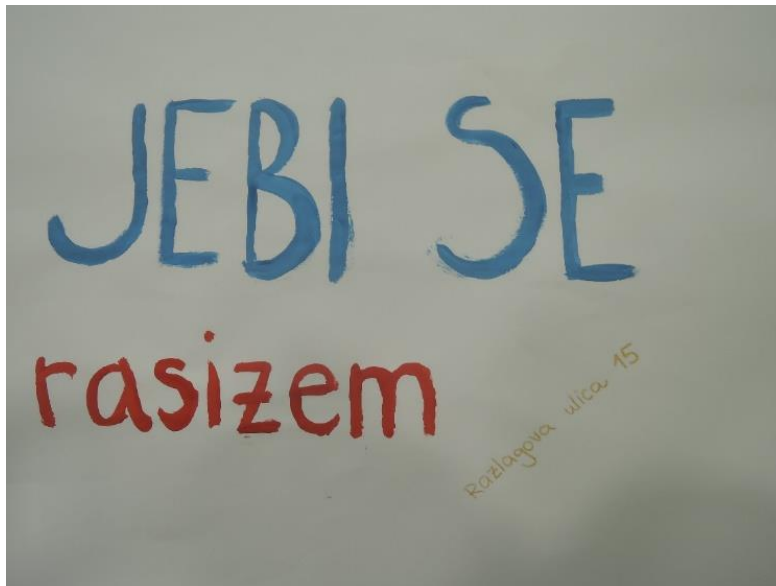 JEBI SE
rasizem
Razlagova ulica 15